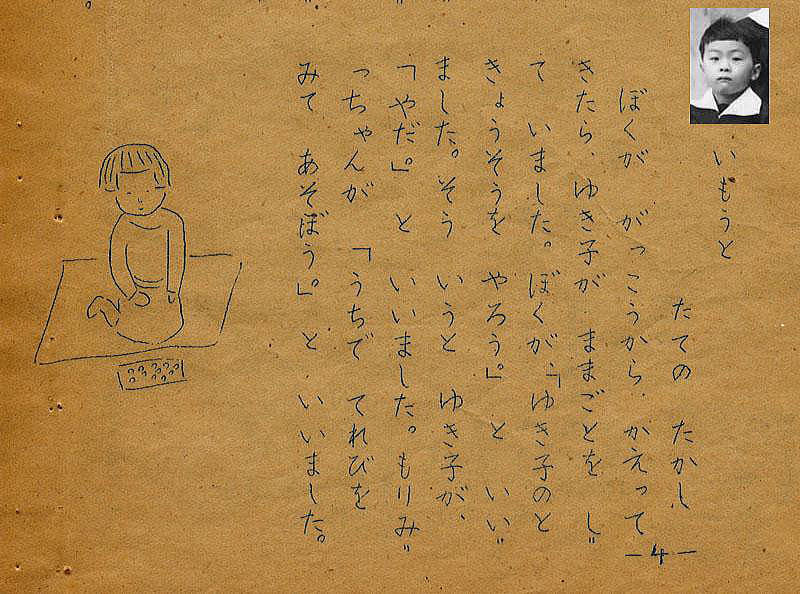 いもうと
たての たかし
ぼくが がっこうから、かえって
きたら、ゆき子が ままごとを し〃
て いました。ぼくが、「ゆき子のと
きょうそうを やろう。」 と いい〃
ました。そう いうと ゆき子が、
「やだ。」 と いいました。もりみ〃
っちゃんが 「うちで てれびを
みて あそぼう。」 と いいました。
-4-